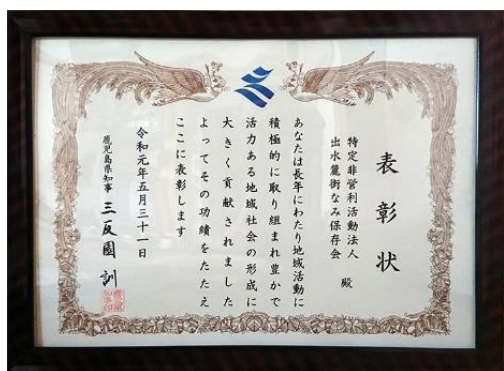 表彰状
特定非営利活動法人
出水麓街なみ保存会 殿
あなたは長年にわたり地域活動に
積極的に取り組まれ豊かで
活力ある地域社会の形成に
大きく貢献されました
よってその功績をたたえ
ここに表彰します
令和元年五月三十一日
鹿児島県知事 三反園 訓